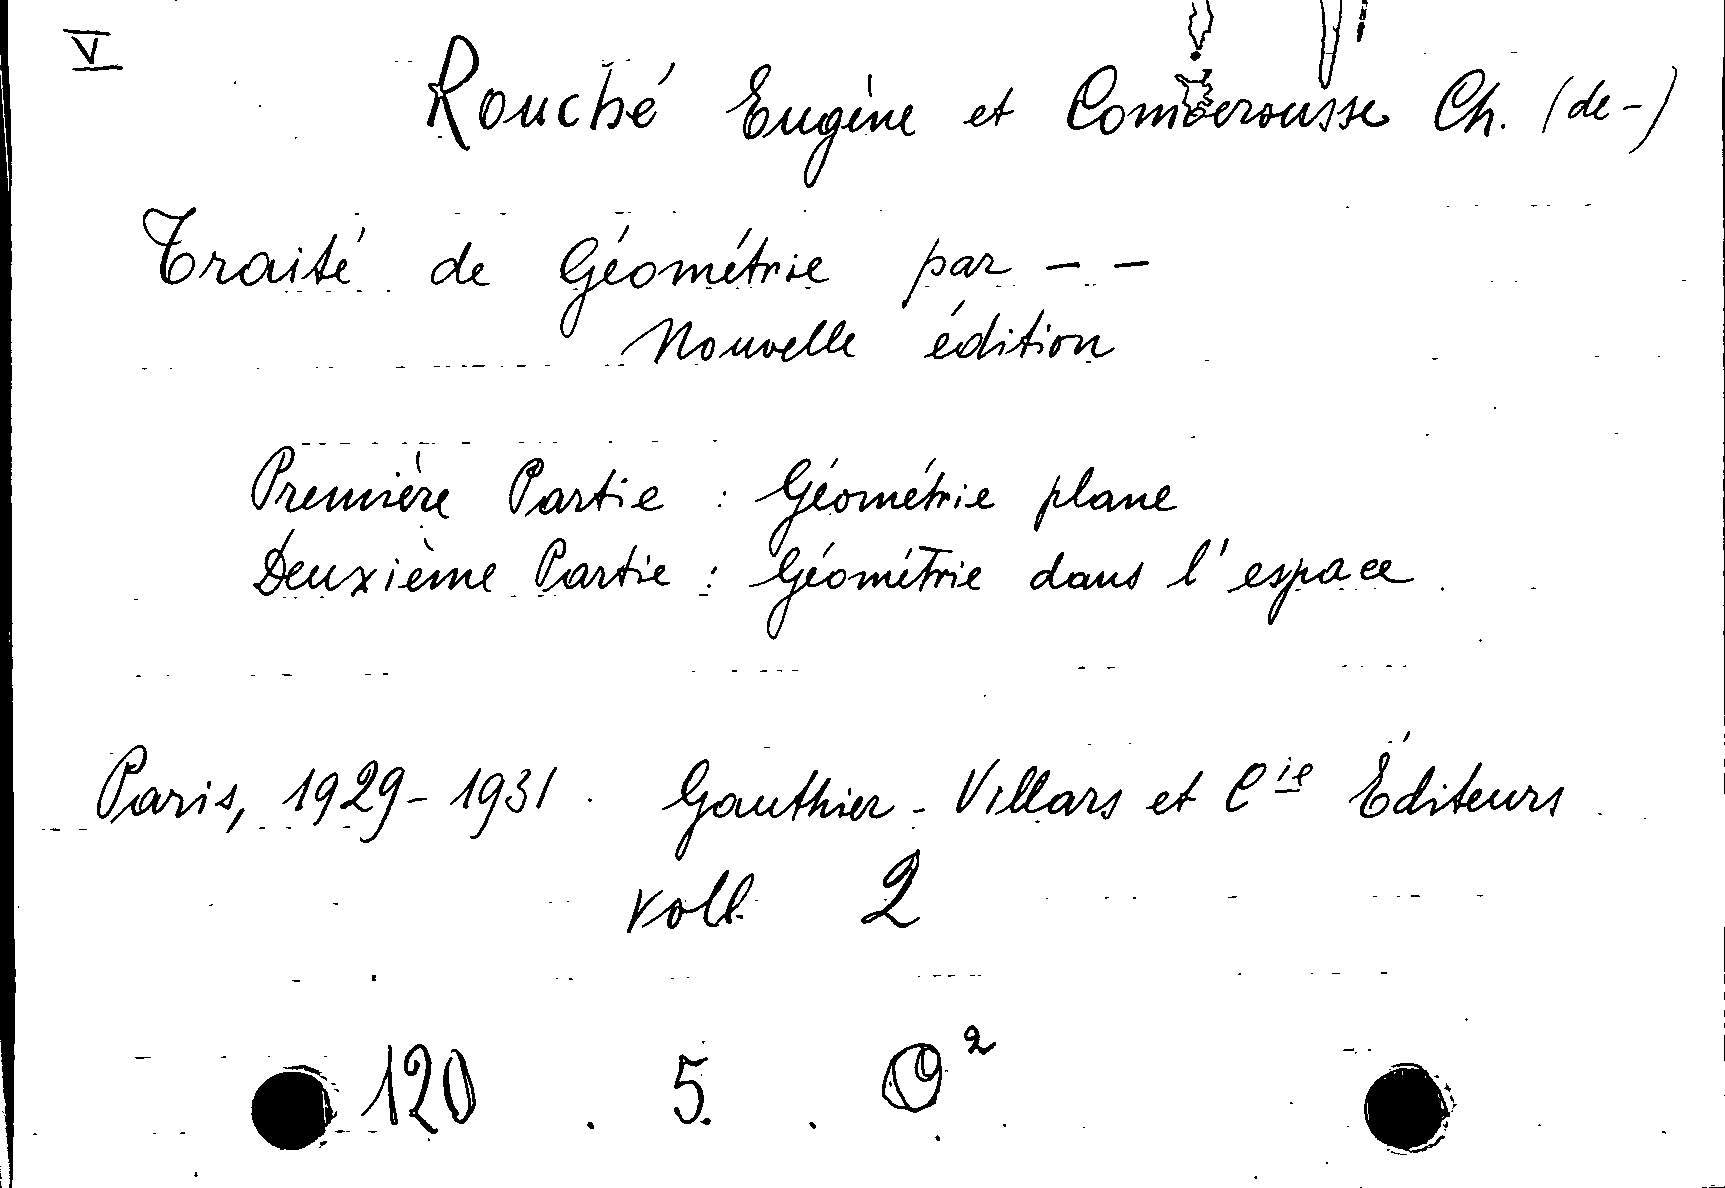 V
Rouché Eugène et Comberousse Ch. (de-)
Traité de Géométrie par - -
Nouvelle édition
Première Partie : Géométrie plane
Deuxième Partie : Géométrie dans l'espace
Paris, 1929-1931. Gauthier-Villars et Cie Éditeurs
voll. 2
120 . 5. . O²